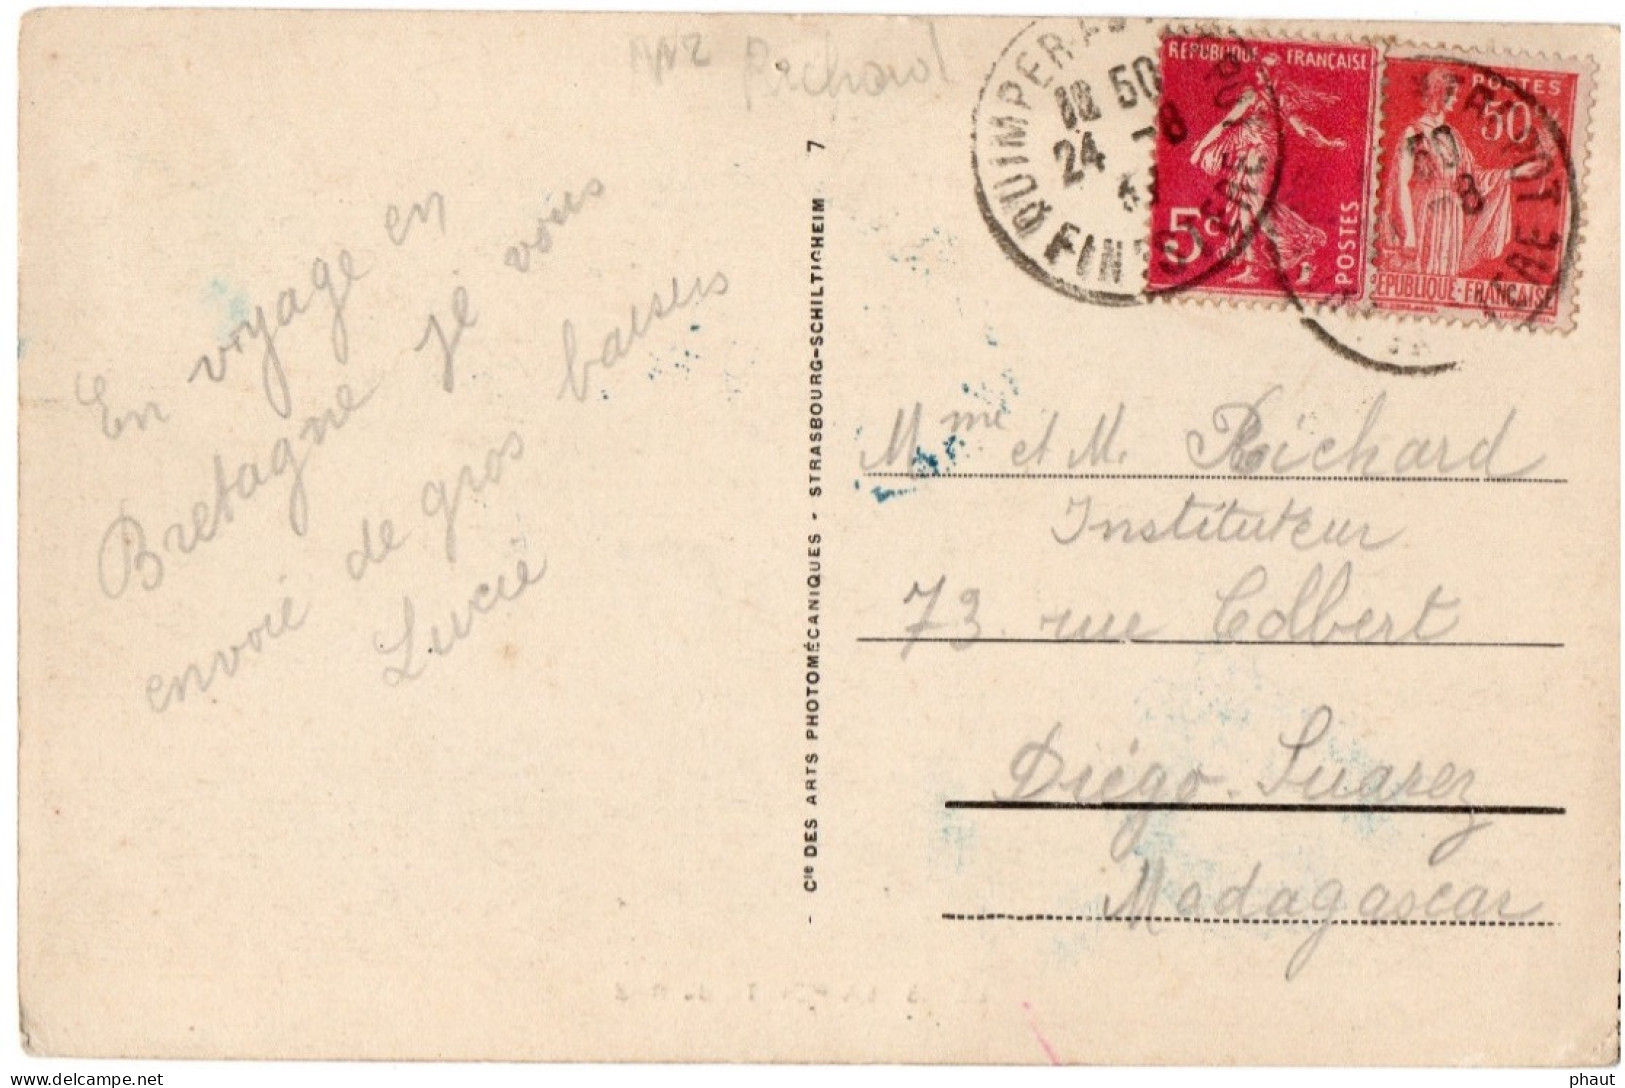 Richard
En voyage en
Bretagne je vous
envoie de gros baisers
Lucie
- Cie DES ARTS PHOTOMÉCANIQUES - STRASBOURG-SCHILTIGHEIM 7
QUIMPER
50
24 -8
FINISTERE
REPUBLIQUE FRANÇAISE
5c
POSTES
POSTES
50
REPUBLIQUE-FRANÇAISE
50
-8
Mme et M. Richard
Instituteur
73 rue Colbert
Diégo-Suarez
Madagascar
phaut